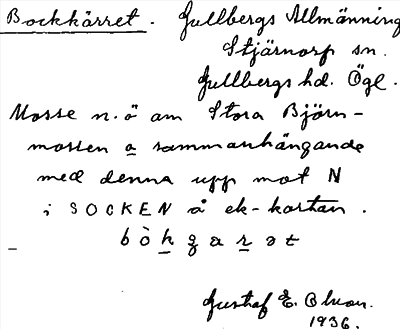 Bockkärret. Gullbergs Allmänning
Stjärnorp sn.
Gullbergs hd. Ögl.
Mosse n.ö am Stora Björn-
mossen a sammanhängande
med denna upp mot N
i SOCKEN å ek-kartan.
bòkʒarət
Gustaf E. Olson.
1936.